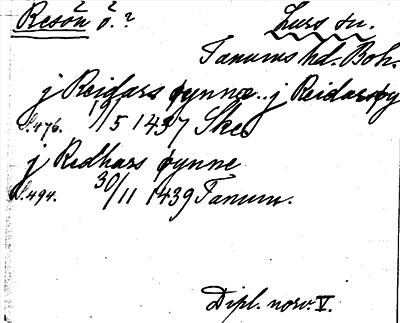 Resön ö.? Lurs sn.
Tanums hd. Boh.
j Reidars øynnæ.. j Reidarsøy
S.476. 1/5 1437 Ske
j Redhars øynne
S.494. 30/11 1439 Tanum.
Dipl. norv. V.